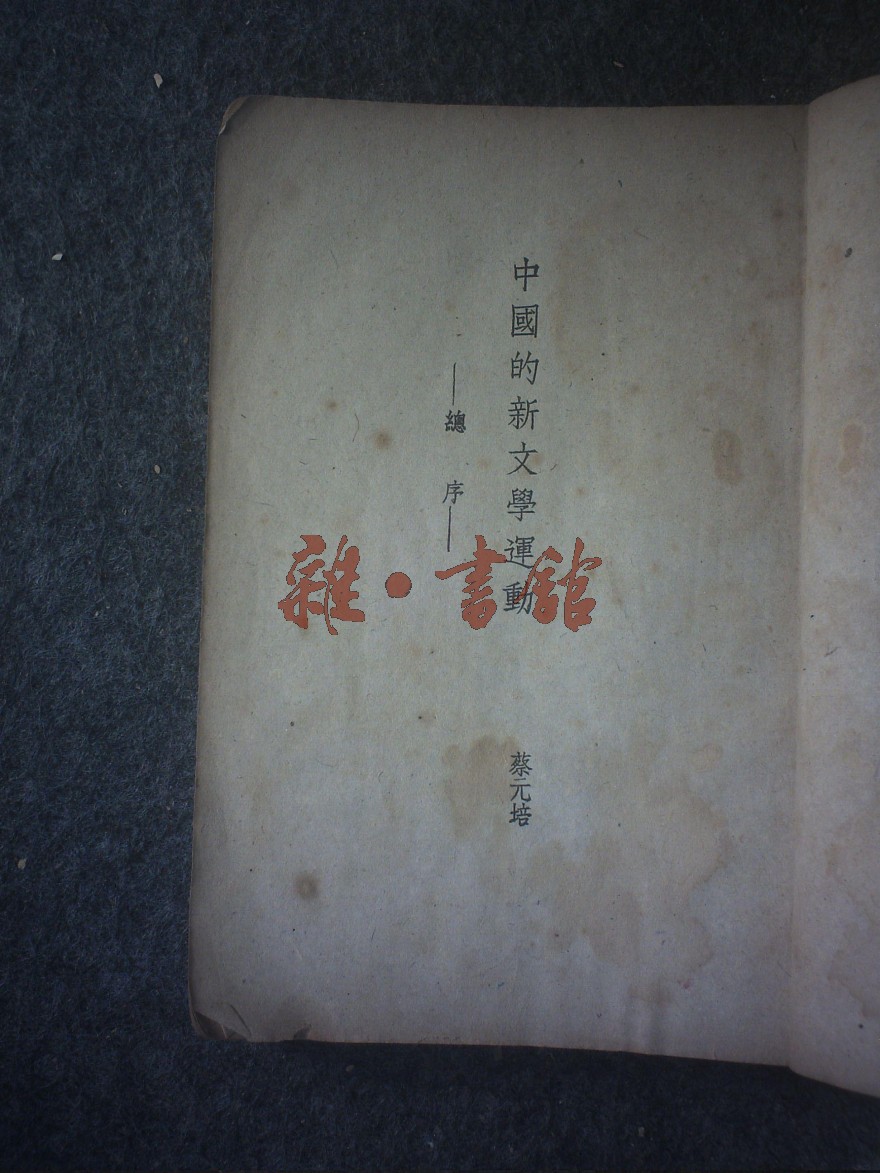 中國的新文學運動
——總序——
蔡元培
雜·書館